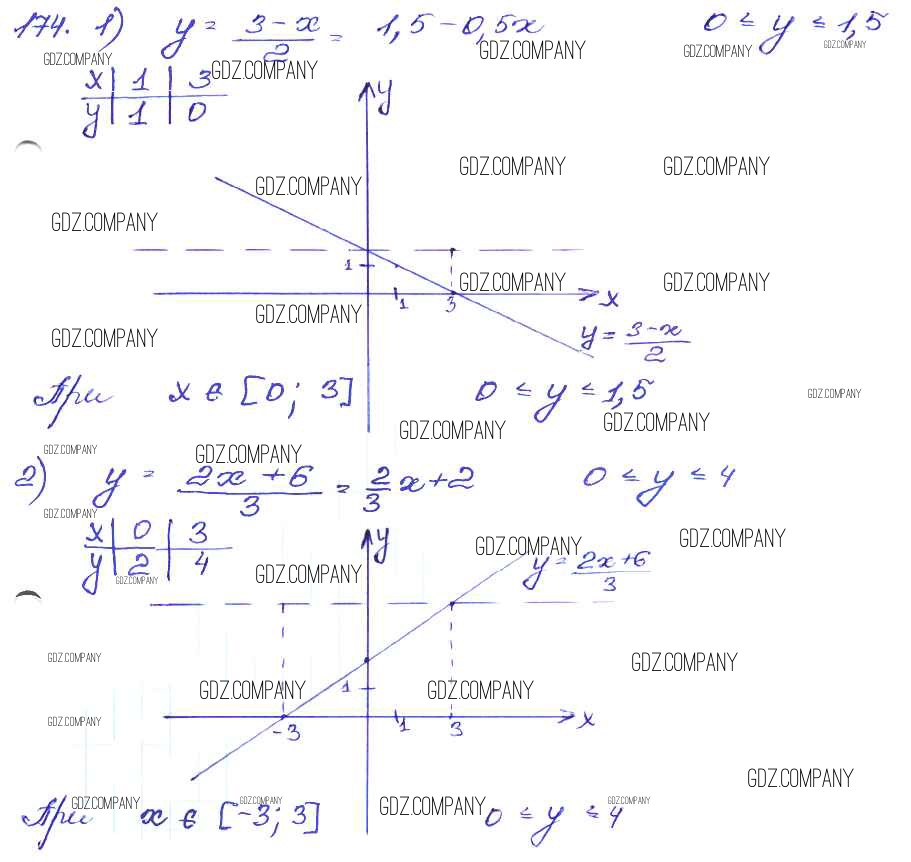 174. 1) y = (3 - x)/2 = 1,5 - 0,5x 0 ≤ y ≤ 1,5
GDZ.COMPANY GDZ.COMPANY GDZ.COMPANY GDZ.COMPANY GDZ.COMPANY
x | 1 | 3
y | 1 | 0
y
GDZ.COMPANY GDZ.COMPANY
GDZ.COMPANY
GDZ.COMPANY
1
GDZ.COMPANY GDZ.COMPANY
1 3 x
GDZ.COMPANY
GDZ.COMPANY
y = (3-x)/2
При x ∈ [0; 3] 0 ≤ y ≤ 1,5
GDZ.COMPANY
GDZ.COMPANY GDZ.COMPANY
GDZ.COMPANY GDZ.COMPANY
2) y = (2x + 6)/3 = 2/3 x + 2 0 ≤ y ≤ 4
GDZ.COMPANY
x | 0 | 3
y | 2 | 4
y
GDZ.COMPANY GDZ.COMPANY
GDZ.COMPANY GDZ.COMPANY
y = (2x+6)/3
GDZ.COMPANY GDZ.COMPANY
1
GDZ.COMPANY GDZ.COMPANY
GDZ.COMPANY
-3 1 3 x
GDZ.COMPANY
GDZ.COMPANY GDZ.COMPANY GDZ.COMPANY GDZ.COMPANY
При x ∈ [-3; 3] 0 ≤ y ≤ 4